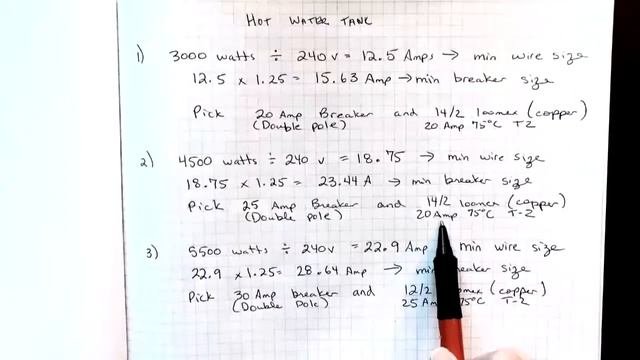 HOT WATER TANK
1) 3000 watts ÷ 240 v = 12.5 Amps → min wire size
12.5 x 1.25 = 15.63 Amp → min breaker size
Pick 20 Amp Breaker and 14/2 loomex (copper)
(Double pole) 20 Amp 75°C T-2
2) 4500 watts ÷ 240 v = 18.75 → min wire size
18.75 x 1.25 = 23.44 A → min breaker size
Pick 25 Amp Breaker and 14/2 loomex (copper)
(Double pole) 20 Amp 75°C T-2
3) 5500 watts ÷ 240v = 22.9 Amp min wire size
22.9 x 1.25 = 28.64 Amp → min breaker size
Pick 30 Amp breaker and 12/2 (copper)
(Double Pole) 25 Am 75°C T-2